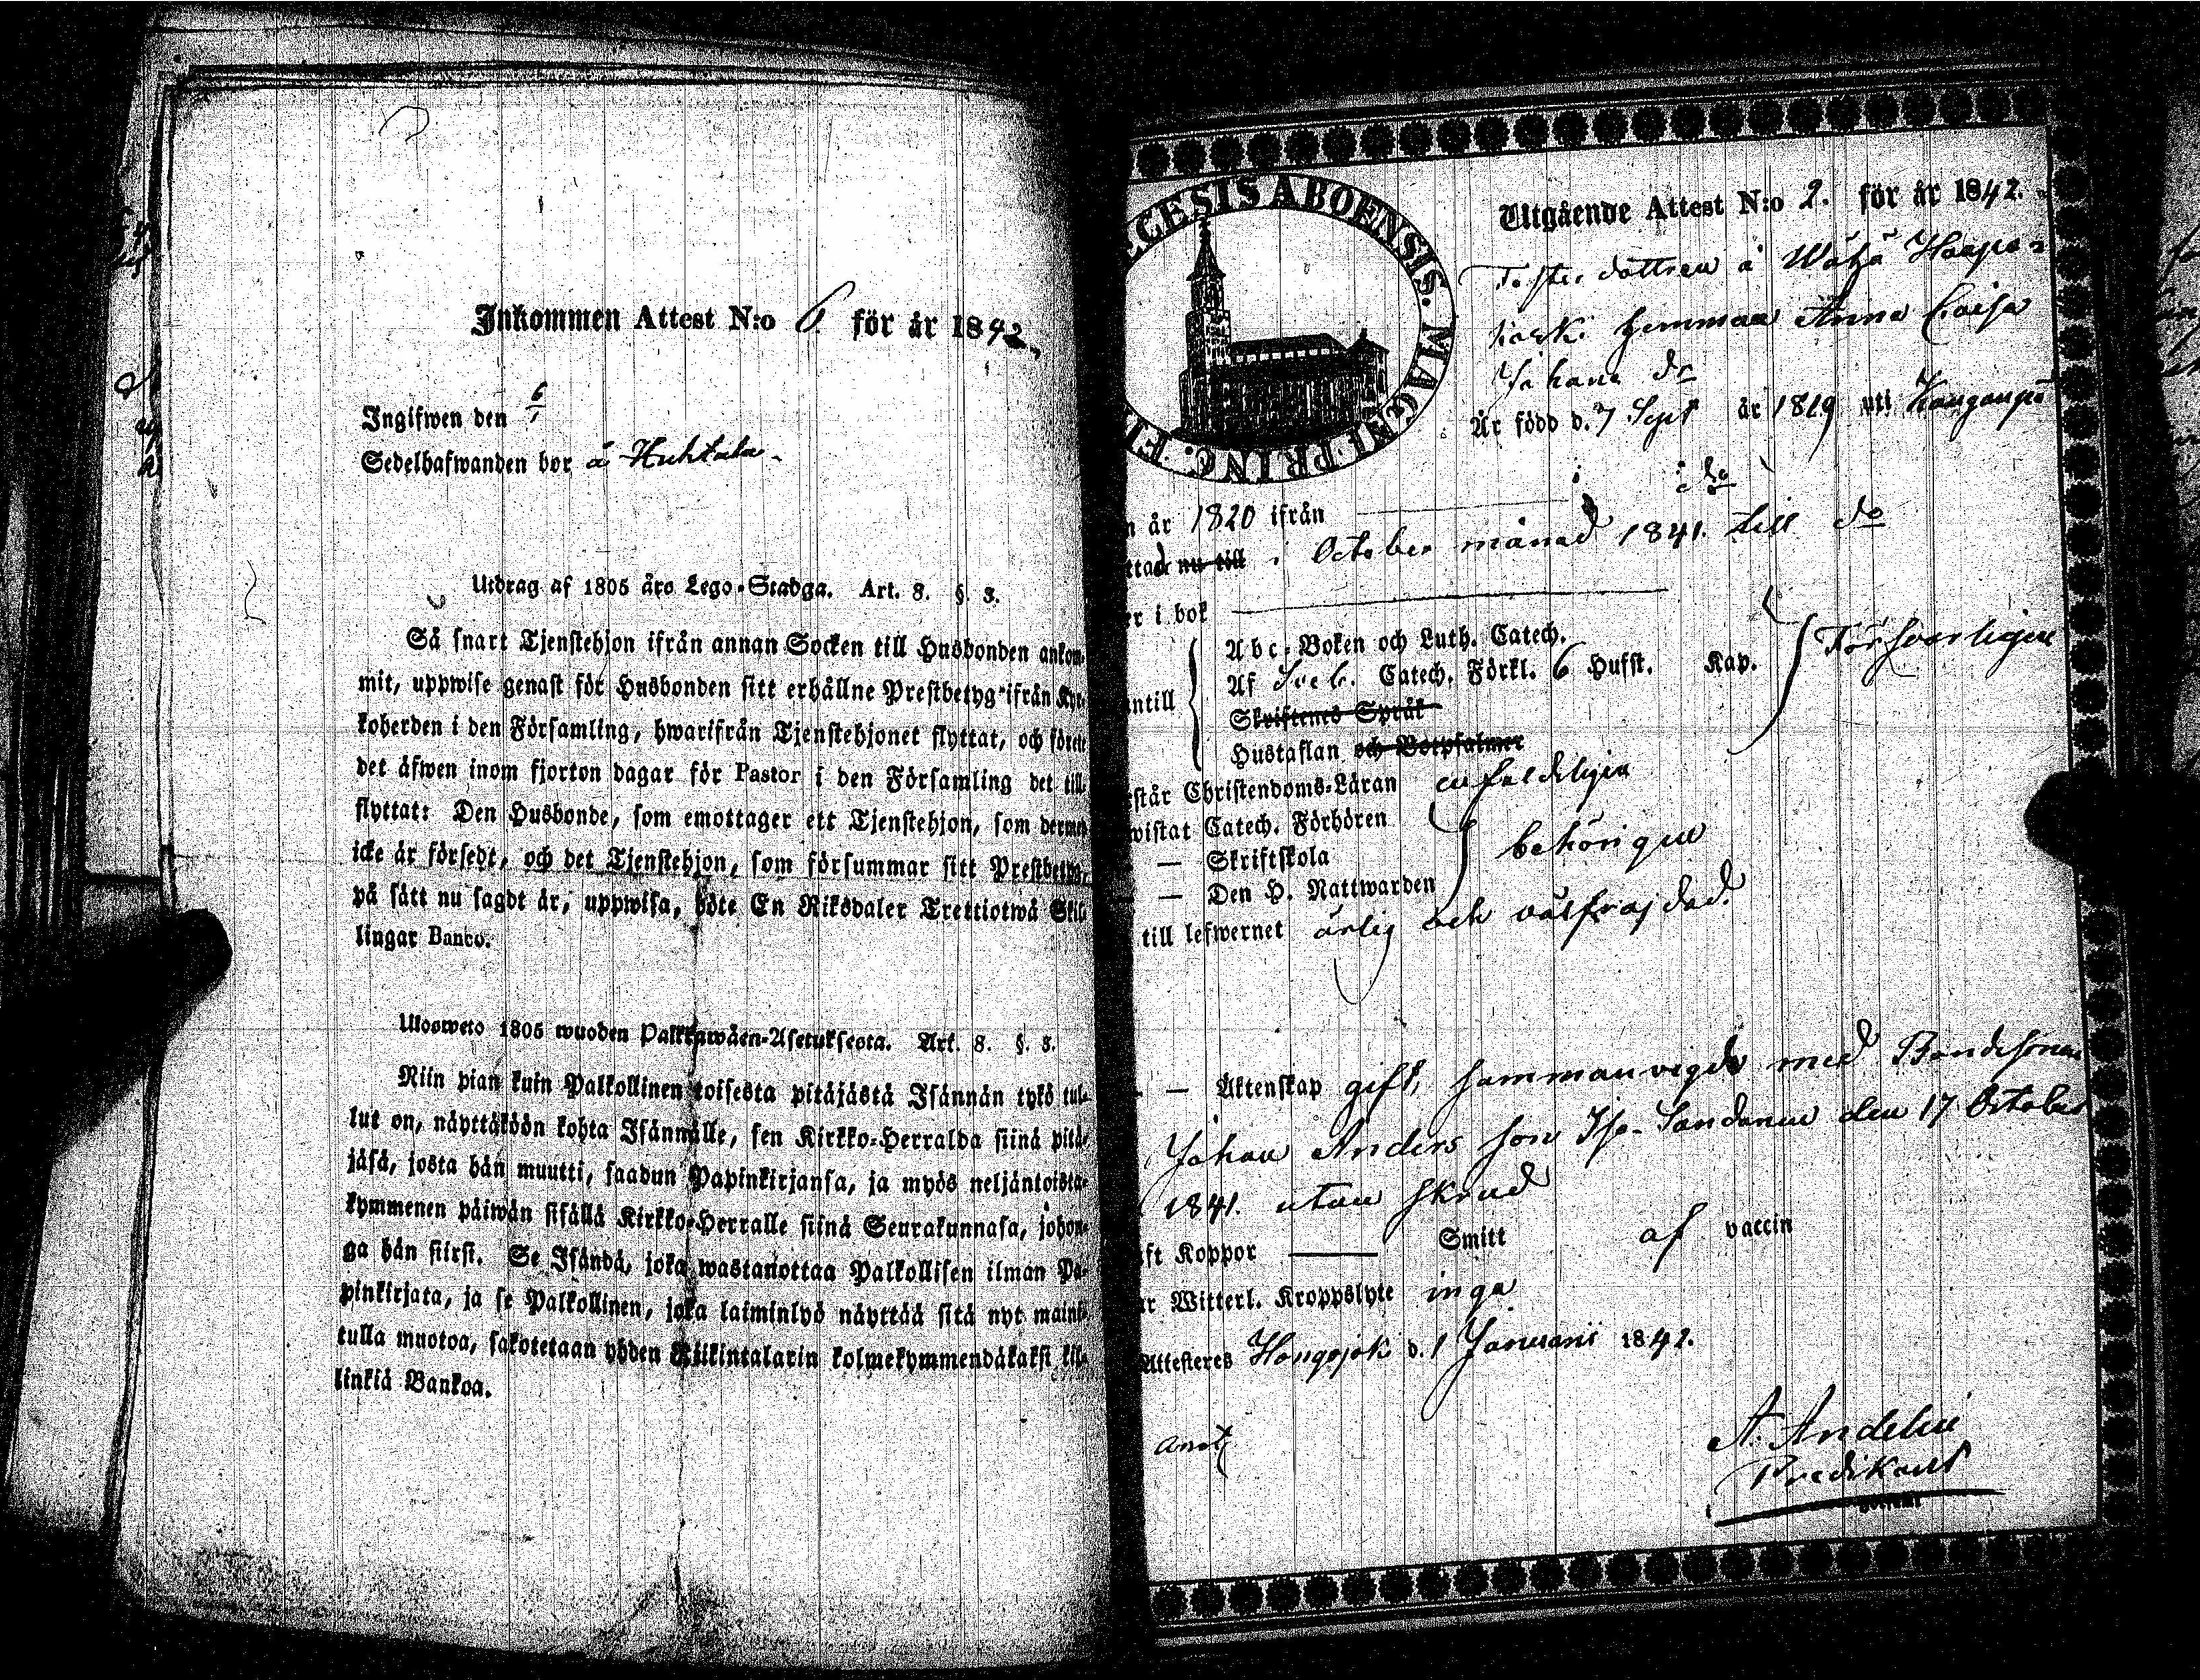 Inkommen Attest N:o 6 för år 1842.
Ingifwen den 6/1
Sedelhafwanden bor å Huhtala.
Utdrag af 1805 års Lego-Stadga. Art. 8. §. 3.
Så snart Tjenstehjon ifrån annan Socken till Husbonden ankom-
mit, uppwise genast för Husbonden sitt erhållne Prestbetyg ifrån Kyr-
koherden i den Församling, hwarifrån Tjenstehjonet flyttat, och förete
det äfwen inom fjorton dagar för Pastor i den Församling det till
flyttat: Den Husbonde, som emottager ett Tjenstehjon, som dermed
icke är försedt, och det Tjenstehjon, som försummar sitt Prestbetyg,
på sätt nu sagdt är, uppwisa, böte En Riksdaler Trettiotwå Skil-
lingar Banco.
Ulosweto 1805 wuoden Palkkawäen-Asetuksesta. Art. 8. §. 3.
Niin pian kuin Palkollinen toisesta pitäjästä Isännän tykö tul-
lut on, näyttäköön kohta Isännälle, sen Kirkko-Herralda siinä pitä-
jäsä, josta hän muutti, saadun Papinkirjansa, ja myös neljäntoista-
kymmenen päiwän sisällä Kirkko-Herralle siinä Seurakunnasa, johon-
ga hän siirsi. Se Isändä, joka wastanottaa Palkollisen ilman Pa-
pinkirjata, ja se Palkollinen, joka laiminlyö näyttää sitä nyt maini-
tulla muotoa, sakotetaan yhden Riikintalarin kolmekymmendäkaksi kil-
linkiä Bankoa.
ECESIS ABOENSIS. MAGNI PRINC. FI
Utgående Attest N:o 2. för år 1842.
dottren å Wähä Haapa-
koski hemman Anna Caisa
Johans dr
Är född d. 7 Sept år 1819 uti Kanganpä
i do
n år 1820 ifrån
ttad nu till i October månad 1841. till do
er i bok
Abc-Boken och Luth. Catech.
Af Sveb. Catech. Förkl. 6 Hufst. Kap. Försvarligen
ntill
Skriftenes Språk
Hustaflan och Botpsalmer
står Christendoms-Läran enfaldeligen
wistat Catech. Förhören
— Skriftskola behörigen
— Den H. Nattwarden
till lefwernet ärlig och välfrajdad.
— Äktenskap gift, sammanvigde med Bondesonen
Johan Anders son Iso-Sandanen den 17 October
1841. utan skrud
ft Koppor Smitt af vaccin
r Witterl. Kroppslyte inga
Attesteres Hongojok d. 1 Januarii 1842.
A. Andelin
Predikant